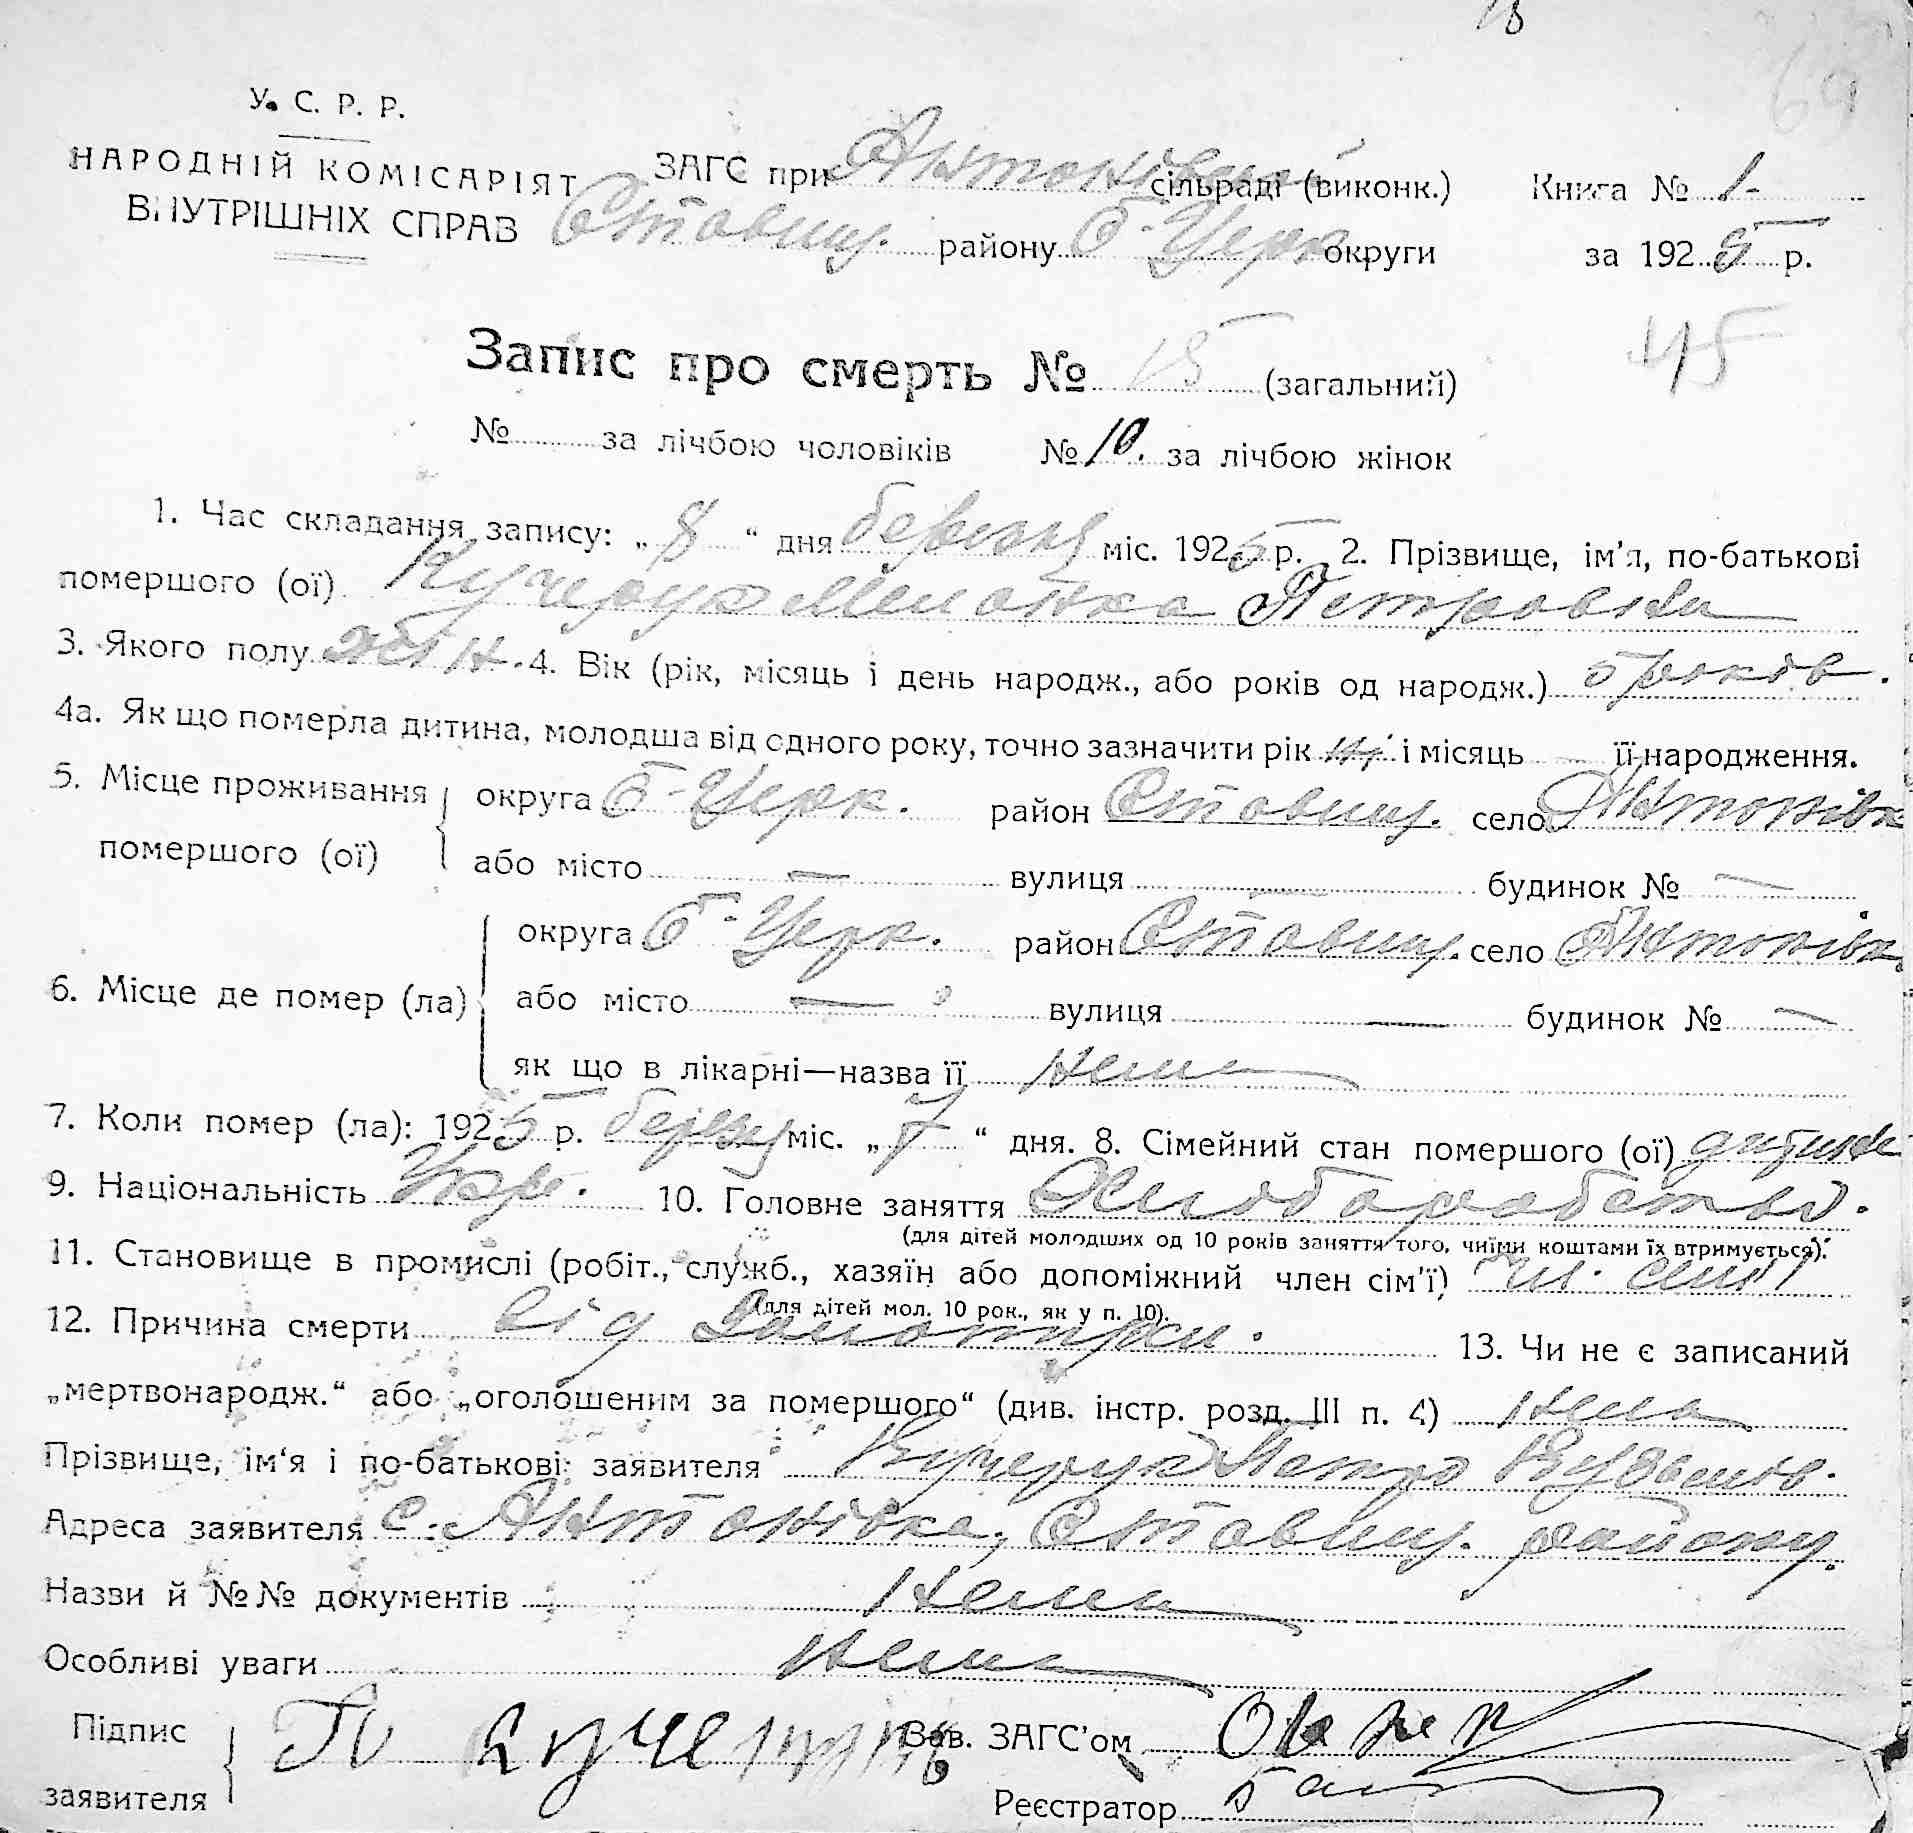 69
У. С. Р. Р.
НАРОДНІЙ КОМІСАРІЯТ
ВНУТРІШНІХ СПРАВ
ЗАГС при Антонівськ. сільраді (виконк.)
Ставищ. району Б-Церк. округи
Книга № 1
за 1925 р.
45
Запис про смерть № 15 (загальний)
№ за лічбою чоловіків № 10. за лічбою жінок
1. Час складання запису: „8“ дня березня міс. 1925 р. 2. Прізвище, ім’я, по-батькові
помершого (ої) Кучерук Меланка Петровна
3. Якого полу жін. 4. Вік (рік, місяць і день народж., або років од народж.) 5 років.
4а. Як що померла дитина, молодша від одного року, точно зазначити рік і місяць її народження.
5. Місце проживання помершого (ої) округа Б-Церк. район Ставищ. село Антонівк
або місто — вулиця — будинок № —
6. Місце де помер (ла) округа Б-Церк. район Ставищ. село Антонівк.
або місто — вулиця — будинок № —
як що в лікарні—назва її Нема
7. Коли помер (ла): 1925 р. березня міс. „7“ дня. 8. Сімейний стан помершого (ої) дитина
9. Національність Укр. 10. Головне заняття Хліборобство.
(для дітей молодших од 10 років заняття того, чиїми коштами їх втримується).
11. Становище в промислі (робіт., служб., хазяїн або допоміжний член сім’ї) чл. сімї
(для дітей мол. 10 рок., як у п. 10).
12. Причина смерти від 13. Чи не є записаний
„мертвонародж.“ або „оголошеним за помершого“ (див. інстр. розд. III п. 4) Нема
Прізвище, ім‘я і по-батькові заявителя Кучерук Петро Кузьмів.
Адреса заявителя с. Антонівка, Ставищ. району.
Назви й №№ документів Нема
Особливі уваги Нема
Підпис заявителя П Кучерук Зав. ЗАГС’ом
Реєстратор